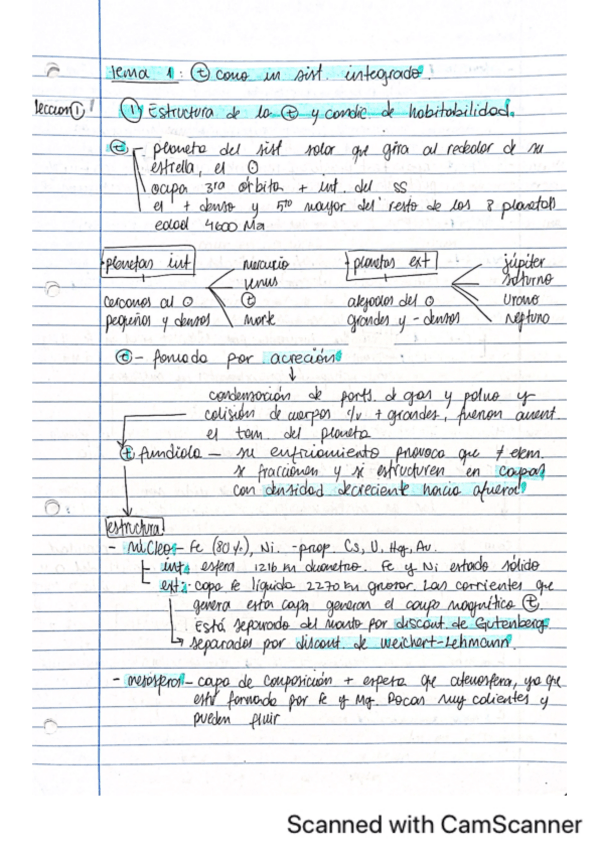 Tema 1: ⊕ como un sist. integrado.
lección ①
① Estructura de la ⊕ y condic. de habitabilidad.
⊕ - planeta del sist solar que gira al rededor de su
estrella, el O
ocupa 3ra órbita + int. del SS
el + denso y 5to mayor del resto de los 8 planetas
edad 4600 Ma
planetas int
cercanos al O
pequeños y densos
mercurio
venus
⊕
marte
planetas ext
alejados del O
grandes y - densos
júpiter
saturno
urano
neptuno
⊕ - formado por acreción
↓
condensación de parts. d gas y polvo y
colisión de cuerpos c/v + grandes, fueron aument
el tam. del planeta
⊕ fundida - su enfriamiento provoca que ≠ elem.
se fraccionen y se estructuren en capas
con densidad decreciente hacia afuera
estructura
- núcleo - Fe (80%), Ni. -prop. Cs, U, Hg, Au.
int: esfera 1216 km diametro. Fe y Ni estado sólido
ext: capa fe líquida 2270 km grosor. Las corrientes que
genera esta capa generan el campo magnético ⊕.
Está separado del manto por discont. de Gutenberg.
separados por discont. de Weichert-Lehmann.
- mesosfera - capa de composición + espesa que astenosfera, ya que
está formada por fe y Mg. Rocas muy calientes y
pueden fluir
Scanned with CamScanner